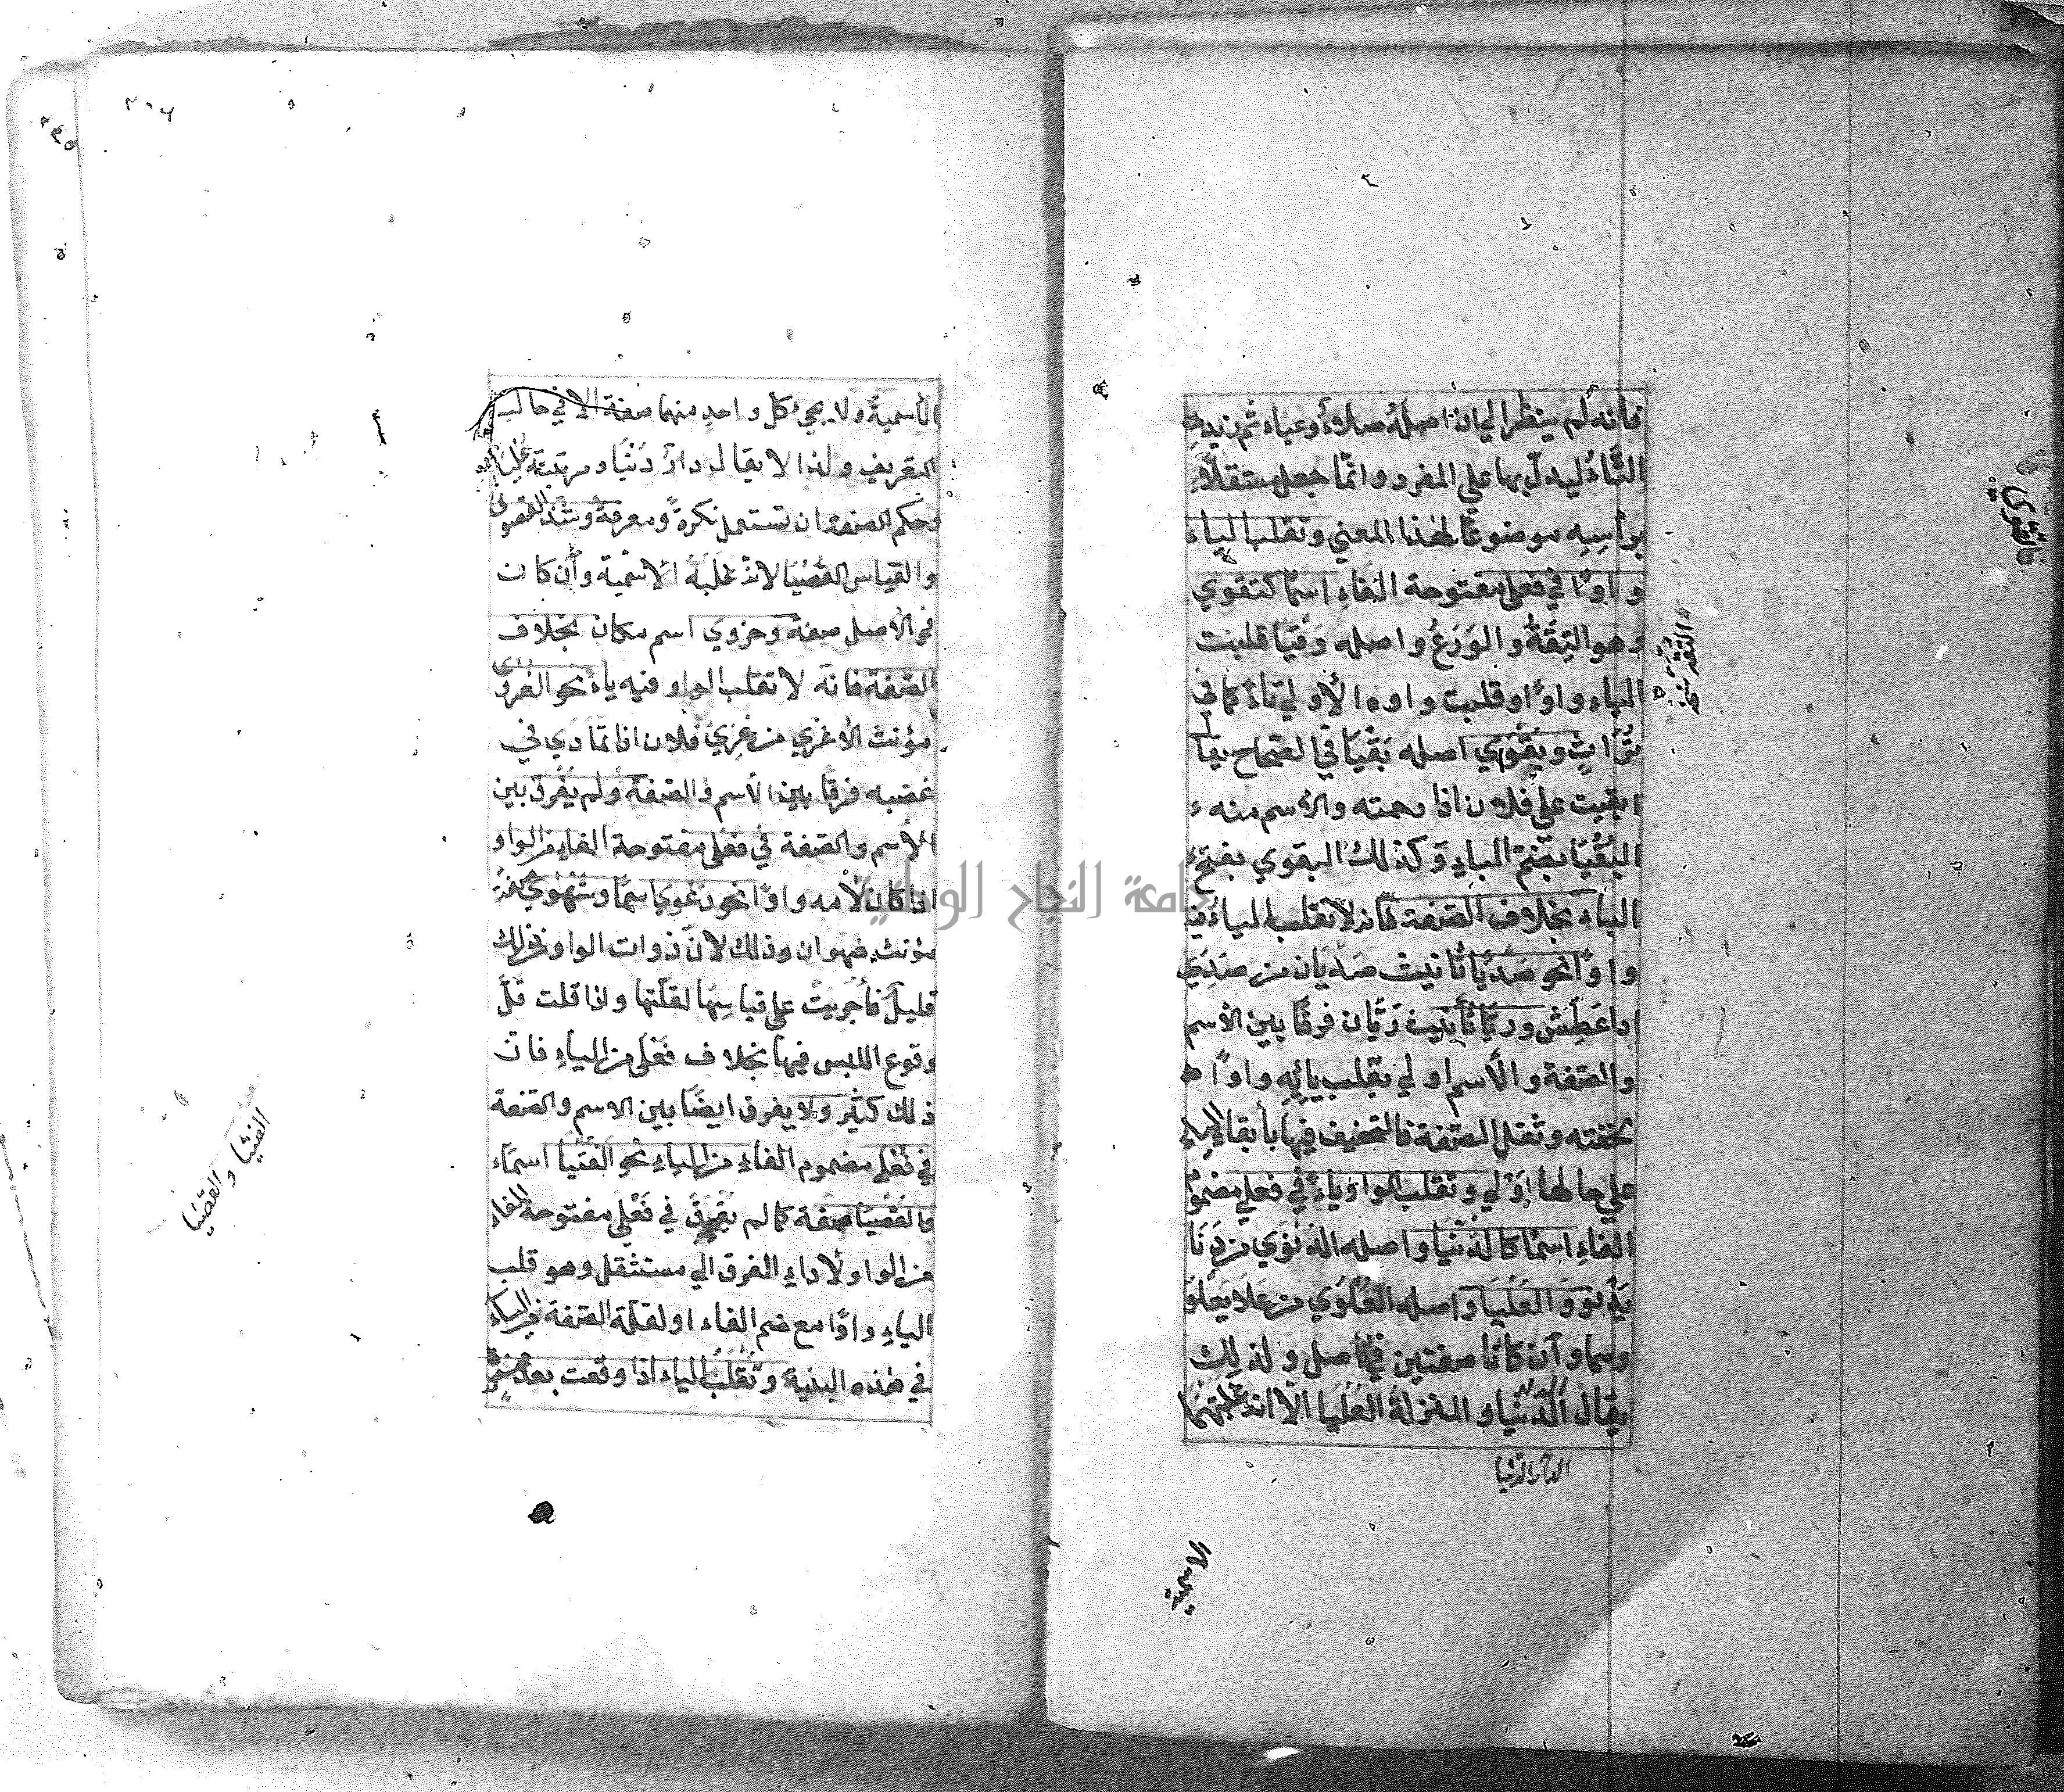 فانه لم ينظر الي ان اصله صلاء وعباء ثم زيدت
التاء ليدل بها علي المفرد وانما جعل مستقلا
برأسه موضوعا لهذا المعني وتقلب الياء
واوًا في فعلي مفتوحة الفاء اسمًا كتقوي
وهو التقة والورع واصله وقيا قلبت
الياء واوًا وقلبت واوه الاولي تاء كما في
تراث وبقوي اصله بقيا في الصحاح يقال
ابقيت علي فلان اذا رحمته والاسم منه
البقيا بضم الباء وكذلك البقوي بفتح
الباء بخلاف الصفة فانه لا تقلب الياء فيه
واوًا نحو صديا تانيث صديان من صدي
اذا عطش وريا تأنيث ريان فرقًا بين الاسم
والصفة والأسم اولي بقلب يائه واوًا
لخفته وثقل الصفة فالتخفيف فيها بأبقاء الياء
علي حالها اولي وتقلب الواو ياءً في فعلي مضموم
الفاء اسمًا كالدنيا واصله الدنوي من دنا
يدنو والعليا واصله العلوي من علا يعلو
وسما وان كانا صفتين في الأصل ولذلك
يقال الدنيا والمنزلة العليا الا انه غلبتهما
الدار الدنيا
الاسمية
كالتقوي
٢٠٦
الأسمية ولا يجئ كل واحد منهما صفة الا في حال
التعريف ولذا لا يقال دار دنيا ومرتبة عليا
وحكم الصفة ان تستعمل نكرة ومعرفة وشذ القصوي
والقياس القصيا لانه غلبه الاسمية وان كان
في الاصل صفة وحزوي اسم مكان بخلاف
الصفة فانه لا تقلب الواو فيه ياءً نحو الغزوي
مؤنث الاغزي من غري فلان اذا تمادي في
غضبه فرقًا بين الأسم والصفة ولم يفرق بين
الأسم والصفة في فعلي مفتوحة الفاء من الواو
اذا كان لامه واوًا نحو دعوي اسمًا وشهوي صفة
مؤنث شهوان وذلك لان ذوات الواو من ذلك
قليل فأجريت علي قياسها لقلتها واذا قلت قل
وقوع اللبس فيها بخلاف فعلي من الياء فان
ذلك كثير ولا يفرق ايضًا بين الاسم والصفة
في فعلي مضموم الفاء من الياء نحو الفتيا اسمًا
والقضيا صفة كما لم يفرق في فعلي مفتوحة الفاء
من الواو ولأداء الفرق الي مستثقل وهو قلب
الياء واوًا مع ضم الفاء او لقلة الصفة من الياء
في هذه البنية وتقلب الياء اذا وقعت بعد همزة
الفتيا والقضيا
جامعة النجاح الوطنية